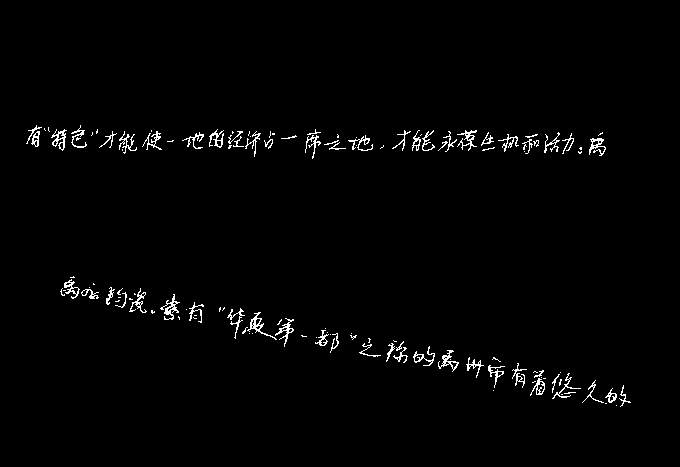 有“特色”才能使一地的经济占一席之地，才能永葆生机和活力。禹
禹州钧瓷。素有“华夏第一都”之称的禹州市有着悠久的